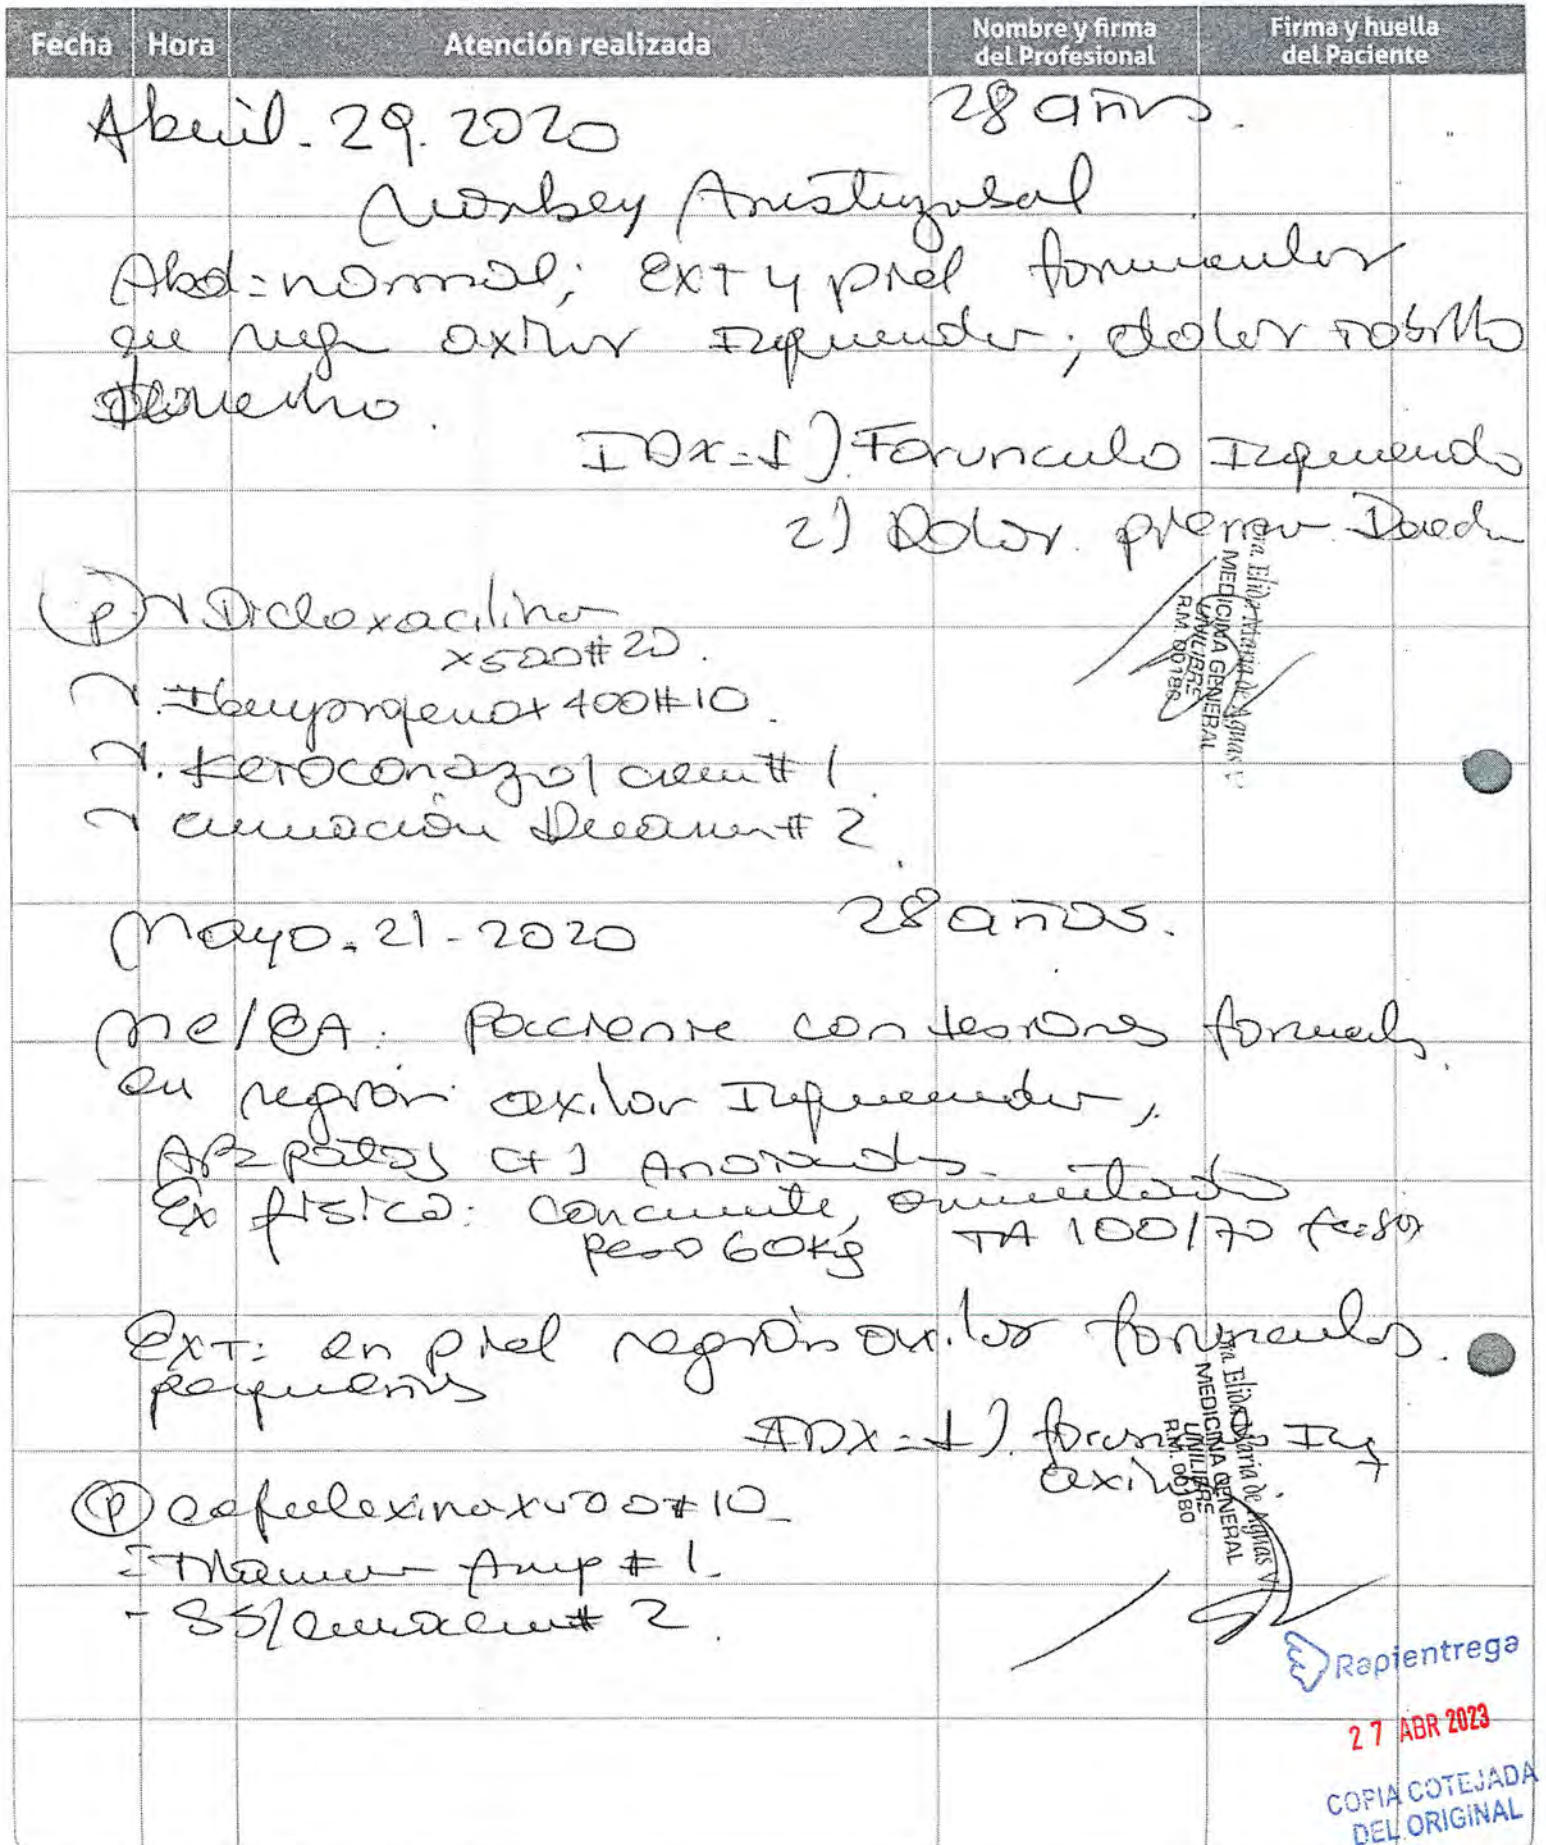 Fecha Hora Atención realizada Nombre y firma del Profesional Firma y huella del Paciente
Abril. 29. 2020 28 años.
Norbey Aristizabal
Abd: normal; Ext y piel forunculos
en axilar Izquierda; dolor tobillo
Derecho.
IDx=1) Forunculo Izquierdo
2) Dolor pierna
Dra. Elida Maria de Aguas V
MEDICINA GENERAL
UNILIBRE
R.M. 00180
(P) Dicloxacilina
x500#20.
Ibuprofeno x 400#10.
Ketoconazol crem#1
curación #2
Mayo. 21-2020 28 años.
MC/EA: Paciente con lesiones
en región axilar Izquierda,
Ex físico: Conciente, orientado
peso 60kg TA 100/70
Ext: en piel región axilar forunculos.
pequeños
IDX=1). Izq
axilar
Dra. Elida Maria de Aguas V
MEDICINA GENERAL
UNILIBRE
R.M. 00180
(P) cefalexina x 500#10
Amp #1.
- SS/ #2.
Rapientrega
27 ABR 2023
COPIA COTEJADA
DEL ORIGINAL